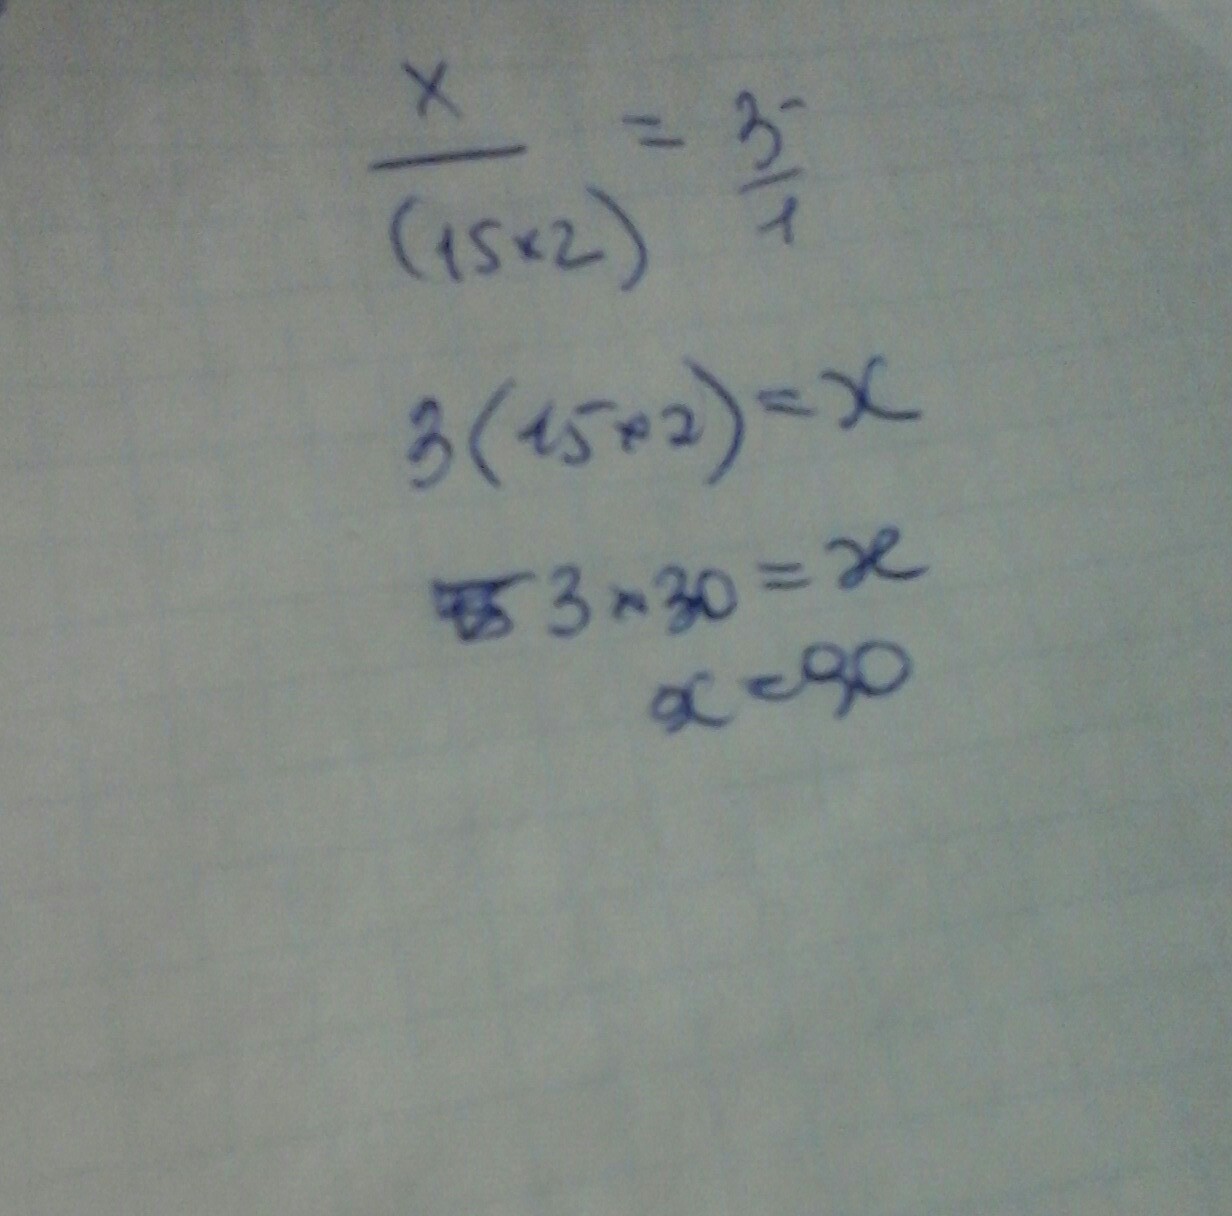 x/(15×2) = 3/1
3(15×2)=x
3×30=x
x=90